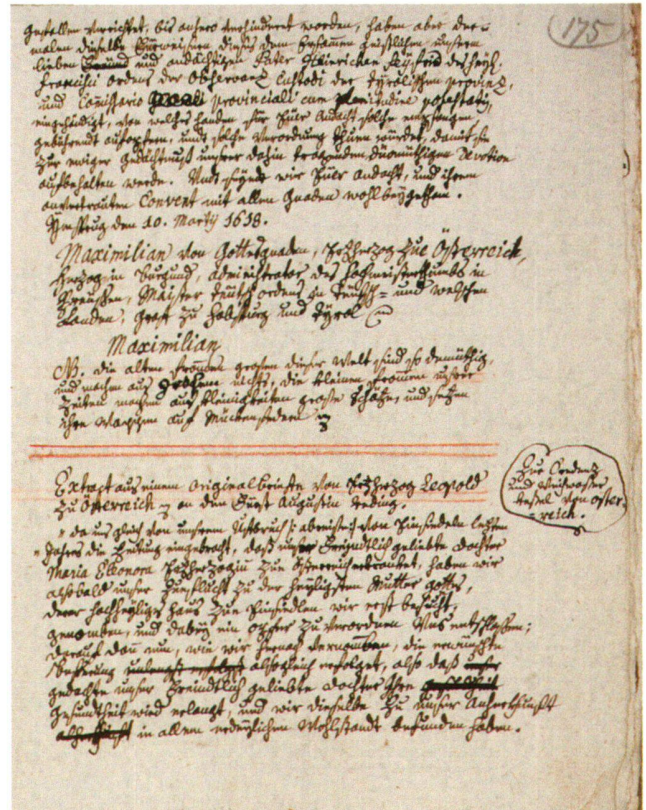 175
gefallen verrichtet, bis anhero verhindert worden, haben aber der=
malen dieselbe
lieben und andächtigen Pater Heinrichen Seyfrid des heyl.
Francisci ordens der Observanz Custodi der tyrolischen provinz,
und Comissario provinciali cum plenitudine potestatis,
eingehändigt, von welches handen Ihr Euer Andacht solche empfangen,
gebührendt aufopfern, undt solche Verordnung thuen würdet, damit sie
zur ewiger gedächtnuß unserer dahin tragenden demüthigen Devotion
aufbehalten werde. Undt seyndt wir Euer andacht, und ihrem
anvertrauten Convent mit allen Gnaden wohlbeygethan.
Ynsprug den 10. Martÿ 1618.
Maximilian von Gottesgnaden, Erzherzog zue Österreich,
Herzog in Burgund, Administrator des Hochmeisterthumbs in
Preussen, Maister teutsch ordens in teutsch= und welschen
Landen, Graf zu Habspurg und Tyrol
Maximilian
NB. die alten fromen grosen dieser Welt sind so demüthig,
und machen aus grossem nichts, die kleinen frommen unsrer
Zeiten machen aus kleinigkeiten grosse schätze, und setzen
ihre auf Muckenfedern
Extract aus einem originalbriefe von Erzherzog Leopold
zu Österreich an den Fürst Augustin Reding.
Zur Credenz
und Weihwasser
kessel von öster=
reich.
" da uns gleich von unserem Aufbruch /: abreise :/ von Einsideln letzten
" Jahrs die Zeitung eingebracht, daß unser freündtlich geliebte dochter
Maria Eleonora Erzherzogin zue Österreich erkrankt, haben wir
alsobald unser Zueflucht zu der heyligsten Mutter gotts,
deren hochheyligs haus zue Einsidlen wir erst besucht,
genomben, und dabey ein opfer zu verordnen Uns entschlossen;
darauf dan nun, wie wir hernach vernomben, die erwünschte
besserung alsogleich erfolget, also daß
gedachte unser freindtlich geliebte dochter Ihre
gesundtheit wird erlangt, und wir dieselbe zu unser anherokunfft
in allem erdeylichen Wohlstandt befunden haben.